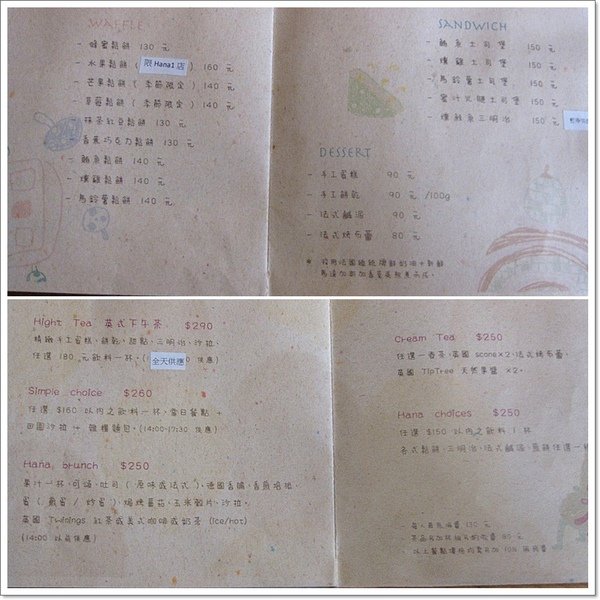 WAFFLE
- 蜂蜜鬆餅 130 元
- 水果鬆餅 ( 限 Hana1 店 ) 160 元
- 芒果鬆餅 ( 季節限定 ) 140 元
- 草莓鬆餅 ( 季節限定 ) 140 元
- 抹茶紅豆鬆餅 130 元
- 香蕉巧克力鬆餅 130 元
- 鮪魚鬆餅 140 元
- 燻雞鬆餅 140 元
- 馬鈴薯鬆餅 140 元
SANDWICH
- 鮪魚土司堡 150 元
- 燻雞土司堡 150 元
- 馬鈴薯土司堡 150 元
- 蜜汁火腿土司堡 150 元
- 燻鮭魚三明治 150 元
DESSERT
- 手工蛋糕 90 元
- 手工餅乾 90 元 /100g
- 法式鹹派 90 元
- 法式烤布蕾 80 元
Hight Tea 英式下午茶 $290
精緻手工蛋糕、餅乾、甜點、三明治、沙拉、
任選 180 元飲料一杯。 全天供應
Simple choice $260
任選 $160 以內之飲料一杯、當日餐點 +
田園沙拉 + 雜糧麵包。(14:00-17:30 供應)
Hana brunch $250
果汁一杯、可頌、吐司 ( 原味或法式 )、德國香腸、
蛋 ( 煎蛋 / 炒蛋 )、焗烤蕃茄、玉米穀片、沙拉、
英國 Twinings 紅茶或美式咖啡或奶茶 (ice/hot)
(14:00 以前供應)
Cream Tea $250
任選一壺茶、英國 scone×2、法式烤布蕾、
英國 TipTree 天然果醬 ×2。
Hana choices $250
任選 $150 以內之飲料 1 杯
各式鬆餅、三明治、法式鹹派、蛋餅任選一
- 每人最低消費 130 元